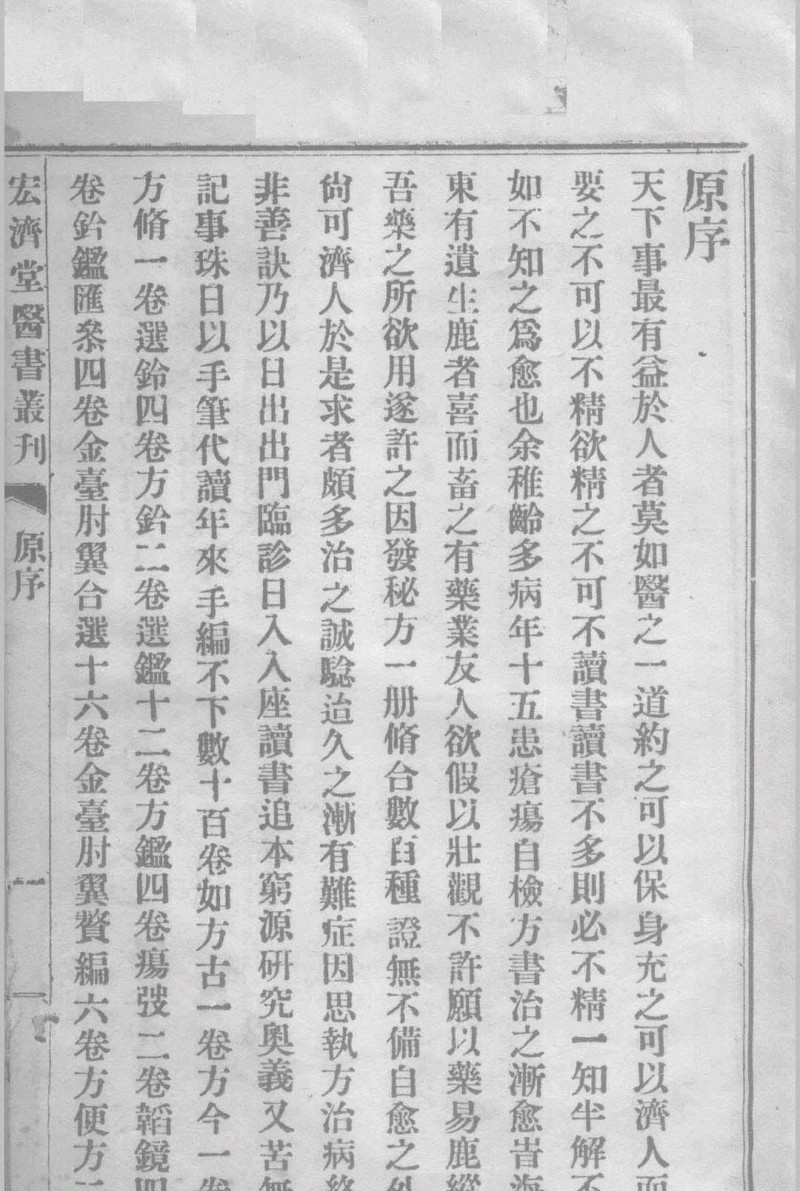 原序
天下事最有益於人者莫如醫之一道約之可以保身充之可以濟人而
要之不可以不精欲精之不可不讀書讀書不多則必不精一知半解不
如不知之爲愈也余稚齡多病年十五患瘡瘍自檢方書治之漸愈旹海
東有遺生鹿者喜而畜之有藥業友人欲假以壯觀不許願以藥易鹿縱
吾藥之所欲用遂許之因發秘方一册脩合數百種證無不備自愈之外
尙可濟人於是求者頗多治之誠騐迨久之漸有難症因思執方治病終
非善訣乃以日出出門臨診日入入座讀書追本窮源硏究奥義又苦無
記事珠日以手筆代讀年來手編不下數十百卷如方古一卷方今一卷
方脩一卷選鈴四卷方鈐二卷選鑑十二卷方鑑四卷瘍弢二卷韜鏡四
卷鈐鑑匯叅四卷金臺肘翼合選十六卷金臺肘翼贅編六卷方便方
宏濟堂醫書叢刊
原序
一